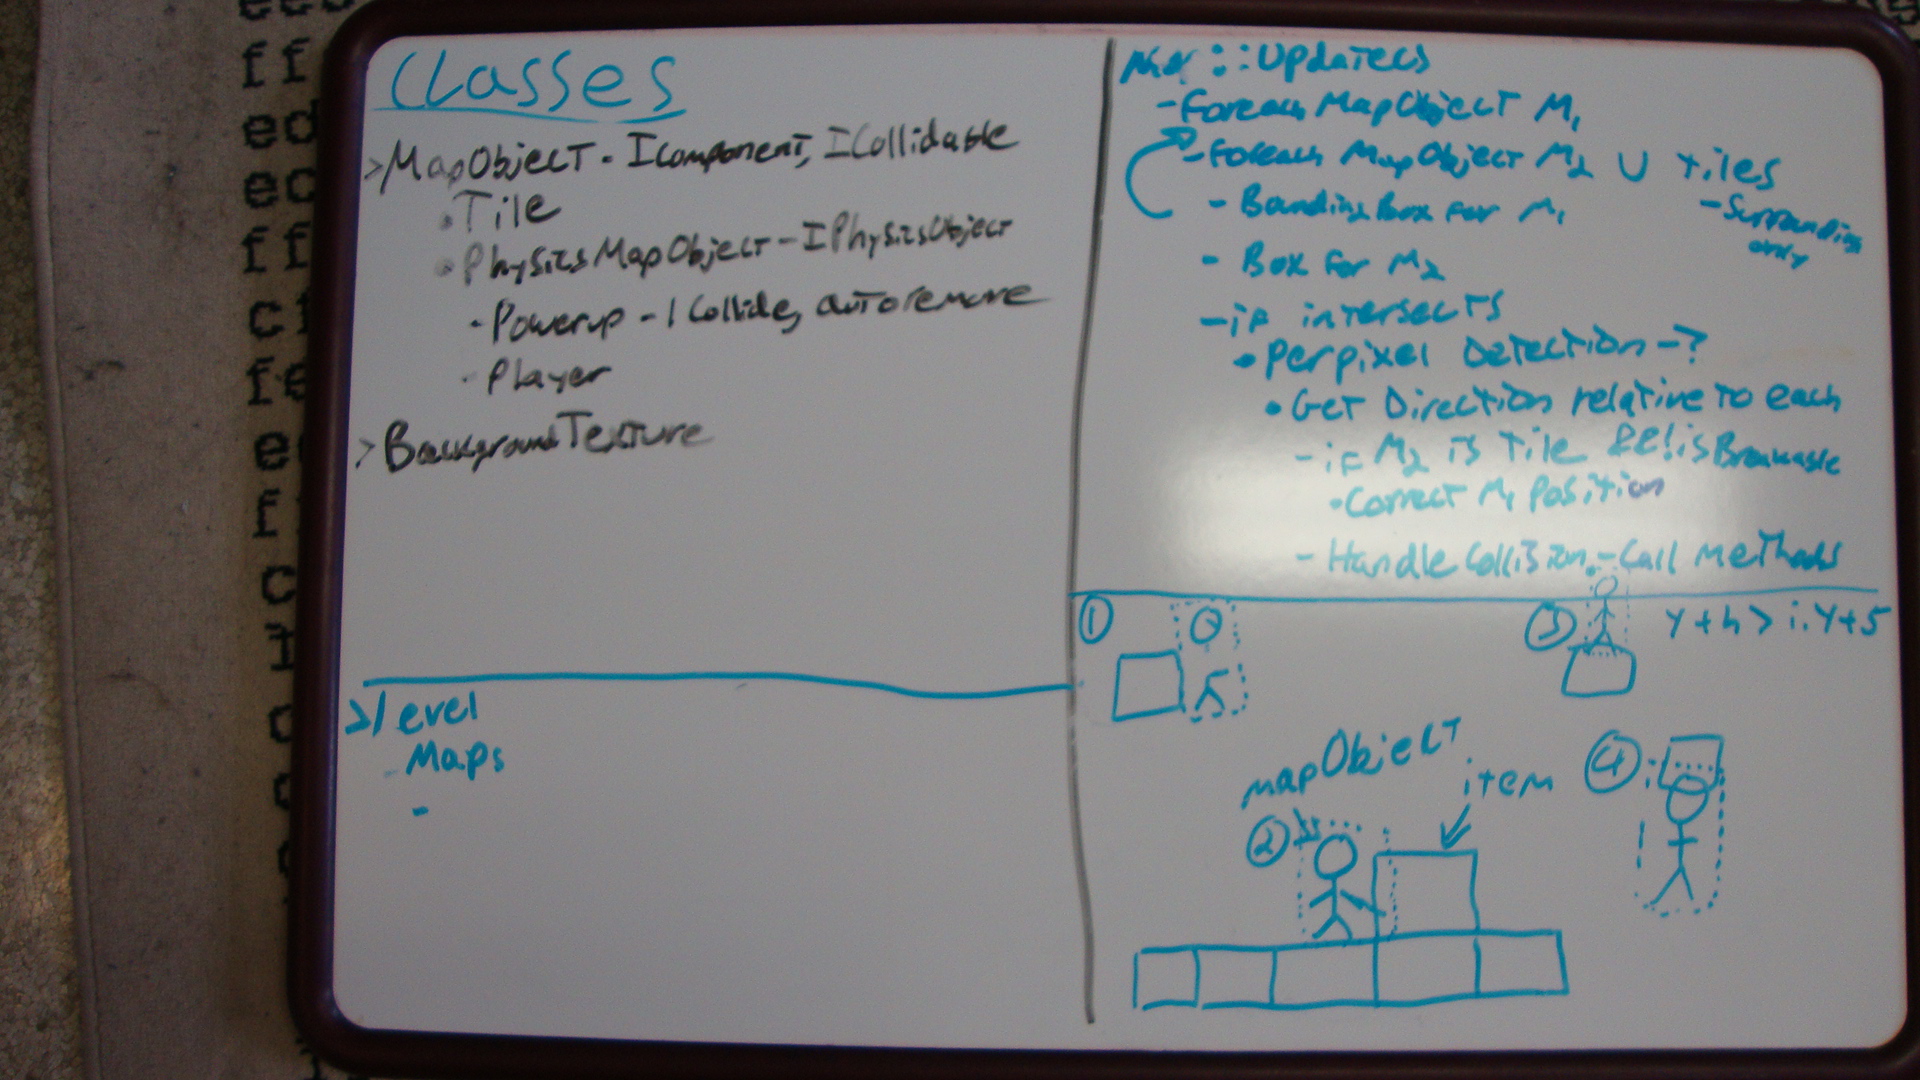 Classes
>MapObject - IComponent, ICollidable
• Tile
• PhysicsMapObject - IPhysicsObject
- Powerup - 1 Collide, autoremove
- Player
> BackgroundTexture
>level
- Maps
-
::Update()
- Foreach MapObject M1
- Foreach MapObject M2 U tiles
- Surrounding only
- Bounding Box for M1
- Box for M2
- if intersects
• Perpixel Detection - ?
• Get Direction relative to each
- if M2 is Tile && !isBreakable
• Correct M1 Position
- Handle Collision - Call Methods
1
3
y+h > i.y+5
mapObject
item
4
2
ff
ed
ff